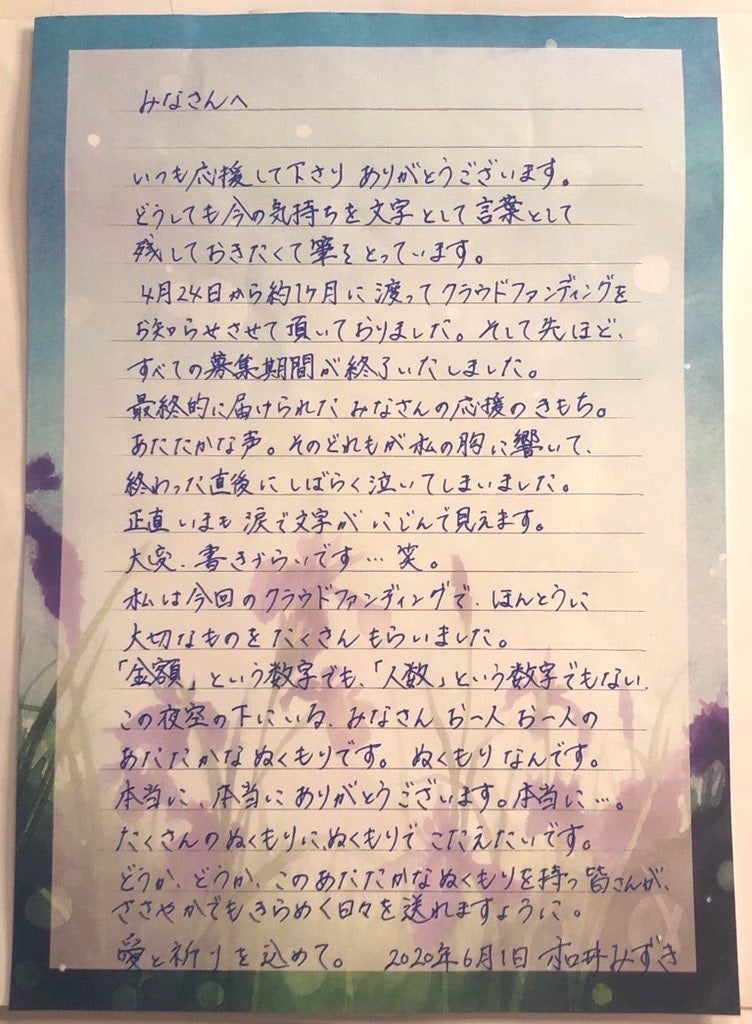 みなさんへ
いつも応援して下さり ありがとうございます。
どうしても今の気持ちを文字として言葉として
残しておきたくて筆をとっています。
4月24日から約1ヶ月に渡ってクラウドファンディングを
お知らせさせて頂いておりました。そして先ほど、
すべての募集期間が終了いたしました。
最終的に届けられたみなさんの応援のきもち。
あたたかな声。そのどれもが私の胸に響いて、
終わった直後にしばらく泣いてしまいました。
正直いまも涙で文字がにじんで見えます。
大変、書きづらいです…笑。
私は今回のクラウドファンディングで、ほんとうに
大切なものをたくさんもらいました。
「金額」という数字でも、「人数」という数字でもない、
この夜空の下にいる、みなさんお一人お一人の
あたたかなぬくもりです。ぬくもりなんです。
本当に、本当にありがとうございます。本当に…。
たくさんのぬくもりに、ぬくもりでこたえたいです。
どうか、どうか、このあたたかなぬくもりを持つ皆さんが、
ささやかでもきらめく日々を送れますように。
愛と祈りを込めて。 2020年6月1日 和井みずき